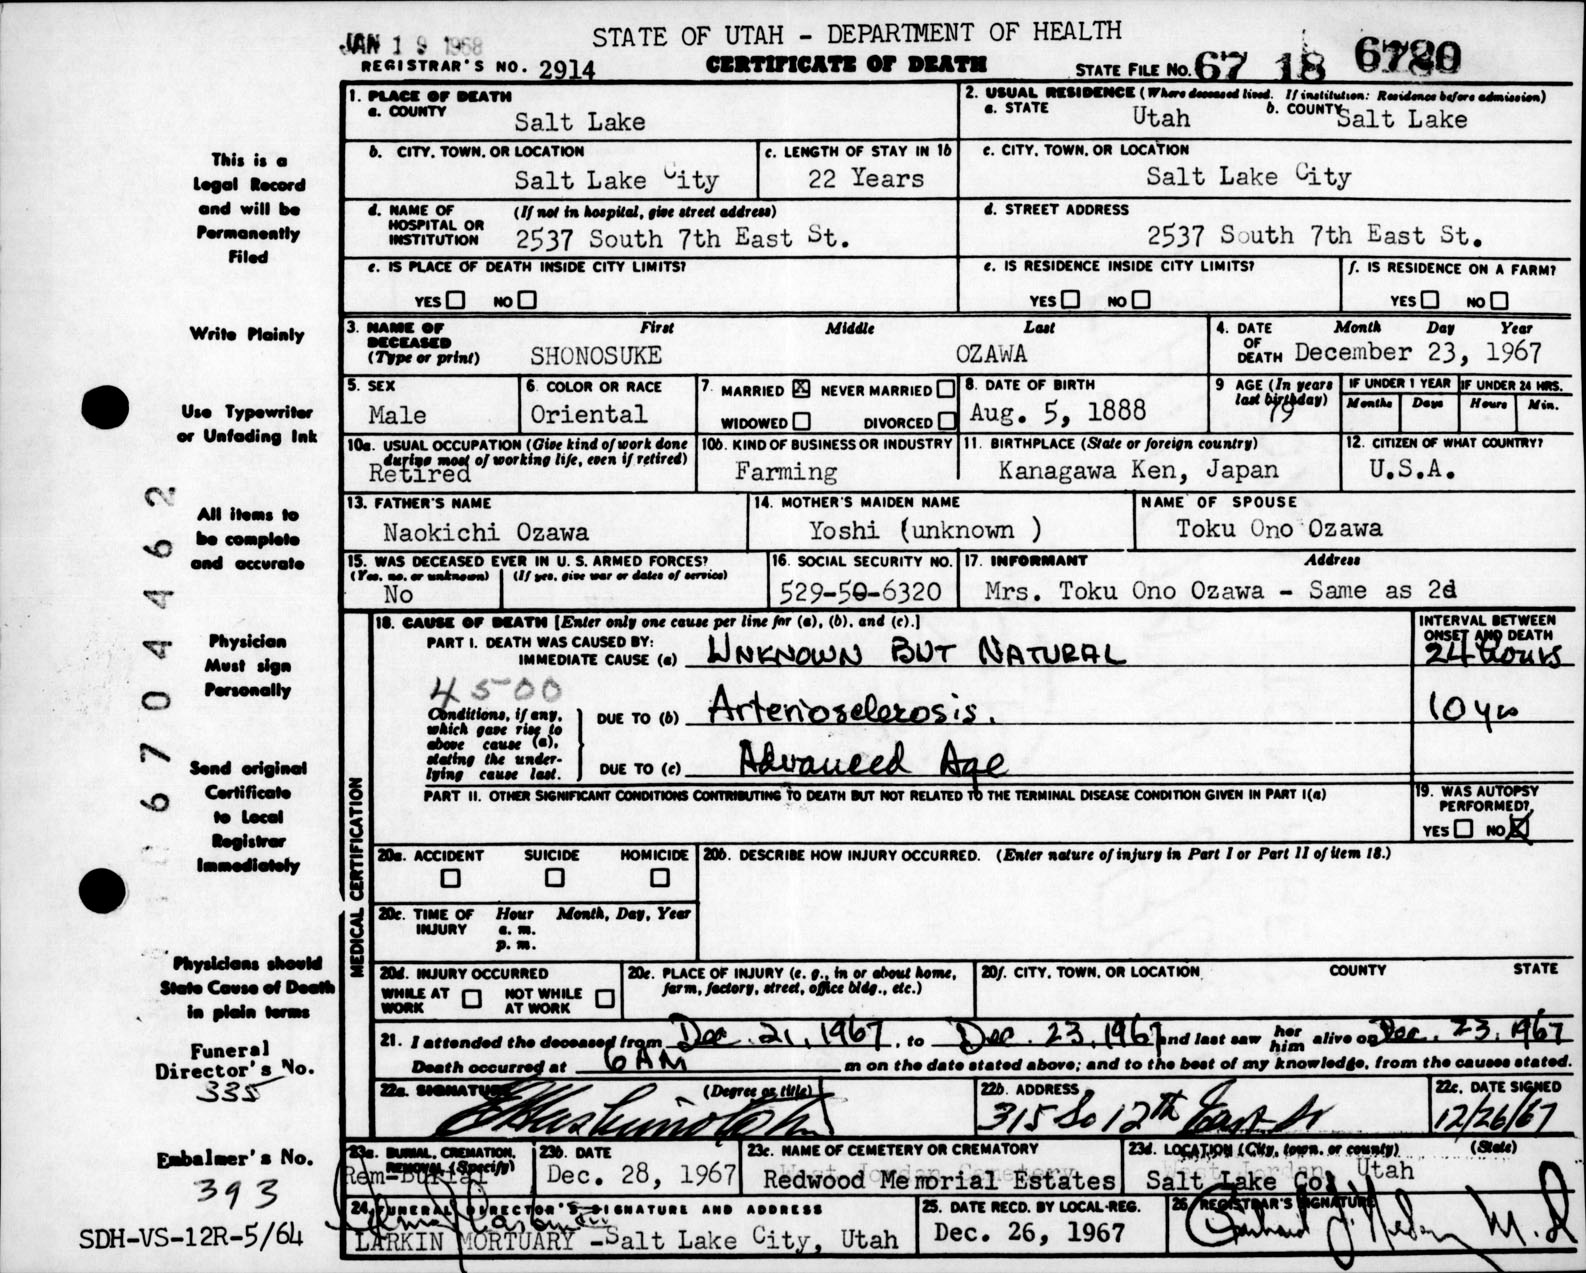 JAN 19 1968
STATE OF UTAH - DEPARTMENT OF HEALTH
REGISTRAR'S NO. 2914
CERTIFICATE OF DEATH
STATE FILE NO. 67 18 6780
1. PLACE OF DEATH
a. COUNTY
Salt Lake
2. USUAL RESIDENCE (Where deceased lived. If institution: Residence before admission)
a. STATE Utah b. COUNTY Salt Lake
b. CITY, TOWN, OR LOCATION
Salt Lake City
c. LENGTH OF STAY IN 1b
22 Years
c. CITY, TOWN, OR LOCATION
Salt Lake City
d. NAME OF HOSPITAL OR INSTITUTION
(If not in hospital, give street address)
2537 South 7th East St.
d. STREET ADDRESS
2537 South 7th East St.
e. IS PLACE OF DEATH INSIDE CITY LIMITS?
YES NO
e. IS RESIDENCE INSIDE CITY LIMITS?
YES NO
f. IS RESIDENCE ON A FARM?
YES NO
3. NAME OF DECEASED (Type or print)
First Middle Last
SHONOSUKE OZAWA
4. DATE OF DEATH Month Day Year
December 23, 1967
5. SEX
Male
6. COLOR OR RACE
Oriental
7. MARRIED NEVER MARRIED
WIDOWED DIVORCED
8. DATE OF BIRTH
Aug. 5, 1888
9 AGE (In years last birthday)
79
IF UNDER 1 YEAR
Months Days
IF UNDER 24 HRS.
Hours Min.
10a. USUAL OCCUPATION (Give kind of work done during most of working life, even if retired)
Retired
10b. KIND OF BUSINESS OR INDUSTRY
Farming
11. BIRTHPLACE (State or foreign country)
Kanagawa Ken, Japan
12. CITIZEN OF WHAT COUNTRY?
U.S.A.
13. FATHER'S NAME
Naokichi Ozawa
14. MOTHER'S MAIDEN NAME
Yoshi (unknown )
NAME OF SPOUSE
Toku Ono Ozawa
15. WAS DECEASED EVER IN U. S. ARMED FORCES?
(Yes, no, or unknown) (If yes, give war or dates of service)
No
16. SOCIAL SECURITY NO.
529-50-6320
17. INFORMANT Address
Mrs. Toku Ono Ozawa - Same as 2d
MEDICAL CERTIFICATION
18. CAUSE OF DEATH [Enter only one cause per line for (a), (b), and (c).]
PART I. DEATH WAS CAUSED BY:
IMMEDIATE CAUSE (a) UNKNOWN BUT NATURAL
INTERVAL BETWEEN ONSET AND DEATH
24 Hours
4500
Conditions, if any, which gave rise to above cause (a), stating the underlying cause last.
DUE TO (b) Arteriosclerosis.
10 yrs
DUE TO (c) Advanced Age
PART II. OTHER SIGNIFICANT CONDITIONS CONTRIBUTING TO DEATH BUT NOT RELATED TO THE TERMINAL DISEASE CONDITION GIVEN IN PART I(a)
19. WAS AUTOPSY PERFORMED?
YES NO
20a. ACCIDENT SUICIDE HOMICIDE
20b. DESCRIBE HOW INJURY OCCURRED. (Enter nature of injury in Part I or Part II of item 18.)
20c. TIME OF INJURY Hour Month, Day, Year
a. m.
p. m.
20d. INJURY OCCURRED
WHILE AT WORK NOT WHILE AT WORK
20e. PLACE OF INJURY (e. g., in or about home, farm, factory, street, office bldg., etc.)
20f. CITY, TOWN, OR LOCATION COUNTY STATE
21. I attended the deceased from Dec. 21, 1967, to Dec. 23, 1967 and last saw her him alive on Dec. 23, 1967
Death occurred at 6 AM m on the date stated above; and to the best of my knowledge, from the causes stated.
22a. SIGNATURE (Degree or title)
22b. ADDRESS
315 So 12th East St
22c. DATE SIGNED
12/26/67
23a. BURIAL, CREMATION, REMOVAL (Specify)
Rem-Burial
23b. DATE
Dec. 28, 1967
23c. NAME OF CEMETERY OR CREMATORY
Redwood Memorial Estates
23d. LOCATION (City, town, or county) (State)
Salt Lake Co. Utah
24. FUNERAL DIRECTOR'S SIGNATURE AND ADDRESS
LARKIN MORTUARY - Salt Lake City, Utah
25. DATE RECD. BY LOCAL REG.
Dec. 26, 1967
26. REGISTRAR'S SIGNATURE
M.D.
This is a
Legal Record
and will be
Permanently
Filed
Write Plainly
Use Typewriter
or Unfading Ink
All items to
be complete
and accurate
Physician
Must sign
Personally
Send original
Certificate
to Local
Registrar
Immediately
Physicians should
State Cause of Death
in plain terms
Funeral
Director's No.
335
Embalmer's No.
393
SDH-VS-12R-5/64
6704462